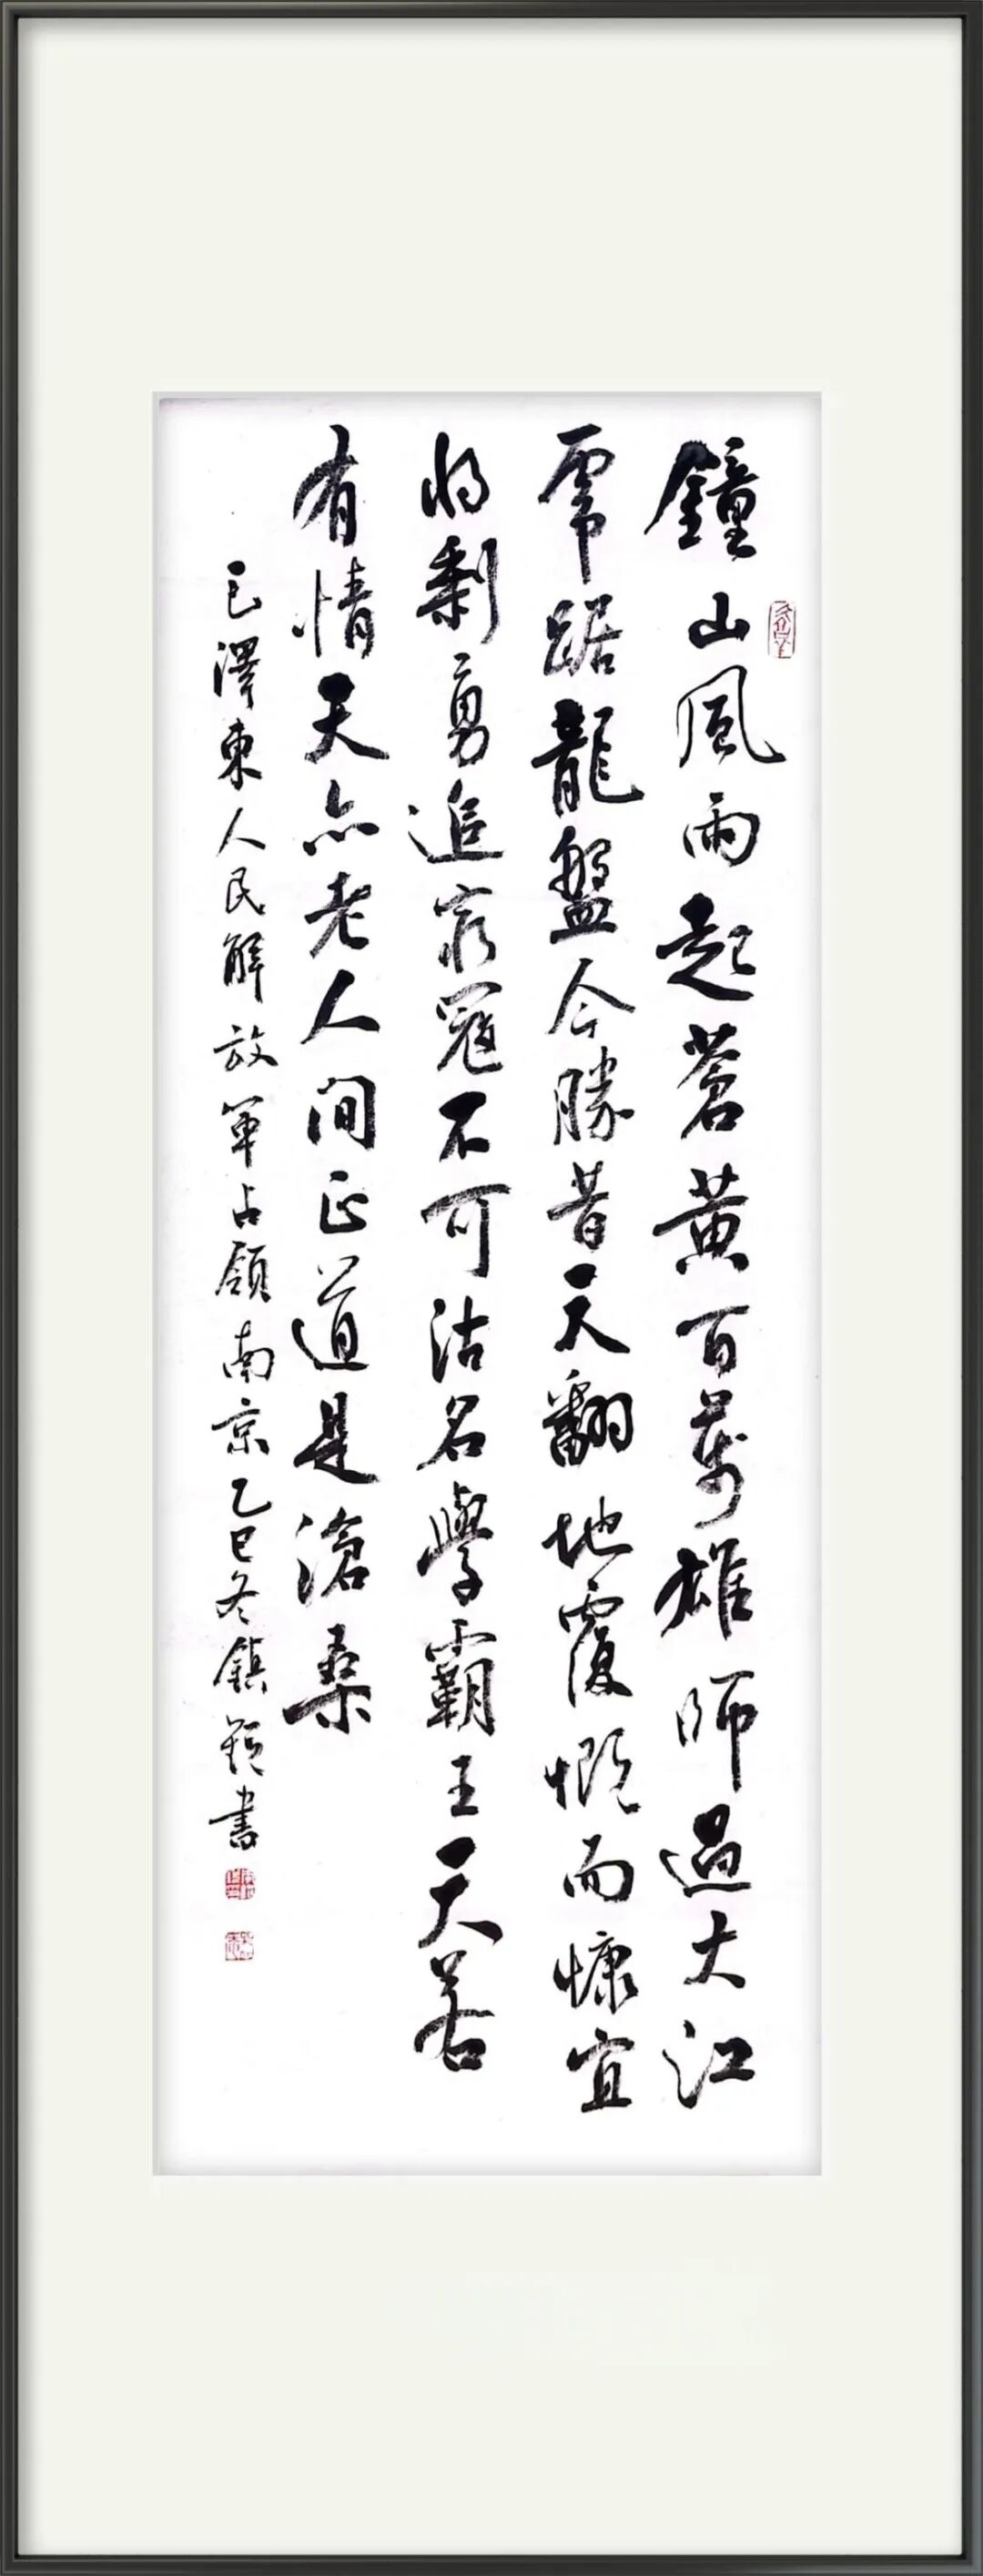 鐘山風雨起蒼黄百萬雄師過大江
虎踞龍盤今勝昔天翻地覆慨而慷宜
將剩勇追窮寇不可沽名學霸王天若
有情天亦老人间正道是滄桑
毛澤東人民解放軍占領南京乙巳冬鎮書